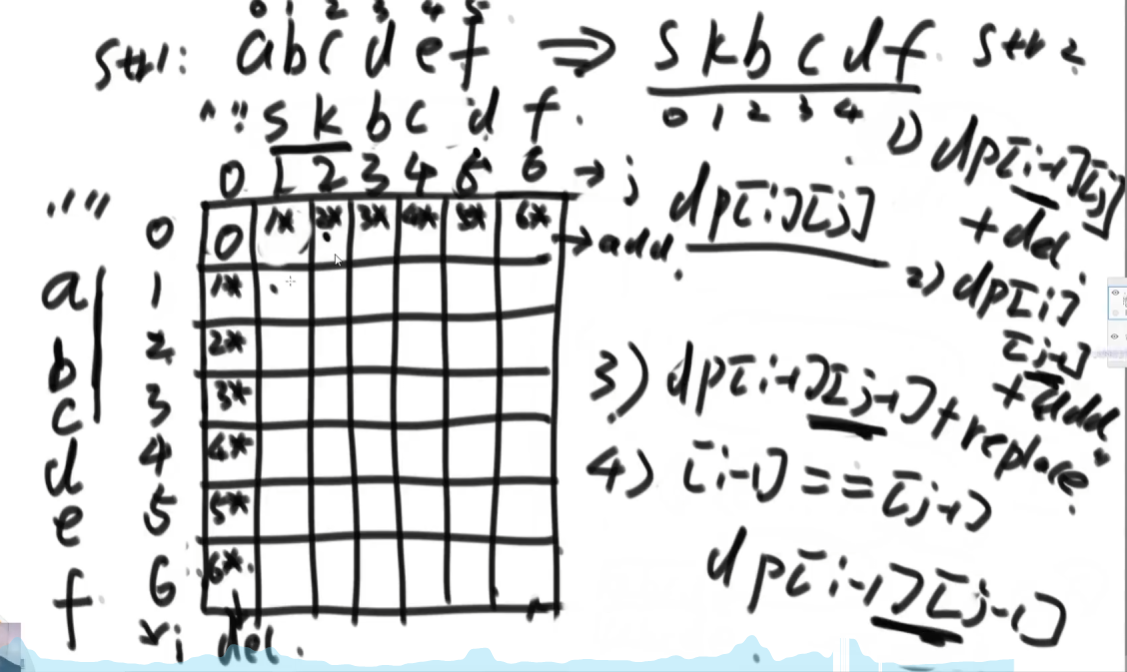 0 1 2 3 4 5
str1: abcdef ⇒ skbcdf str2
0 1 2 3 4
"" s k b c d f
0 1 2 3 4 5 6 → j
"" 0 0 1* 2* 3* 4* 5* 6* → add
a 1 1*
b 2 2*
c 3 3*
d 4 4*
e 5 5*
f 6 6*
i del
dp[i][j]
1) dp[i-1][j]
+ del
2) dp[i]
[j-1]
+ add
3) dp[i-1][j-1] + replace
4) [i-1] == [j-1]
dp[i-1][j-1]